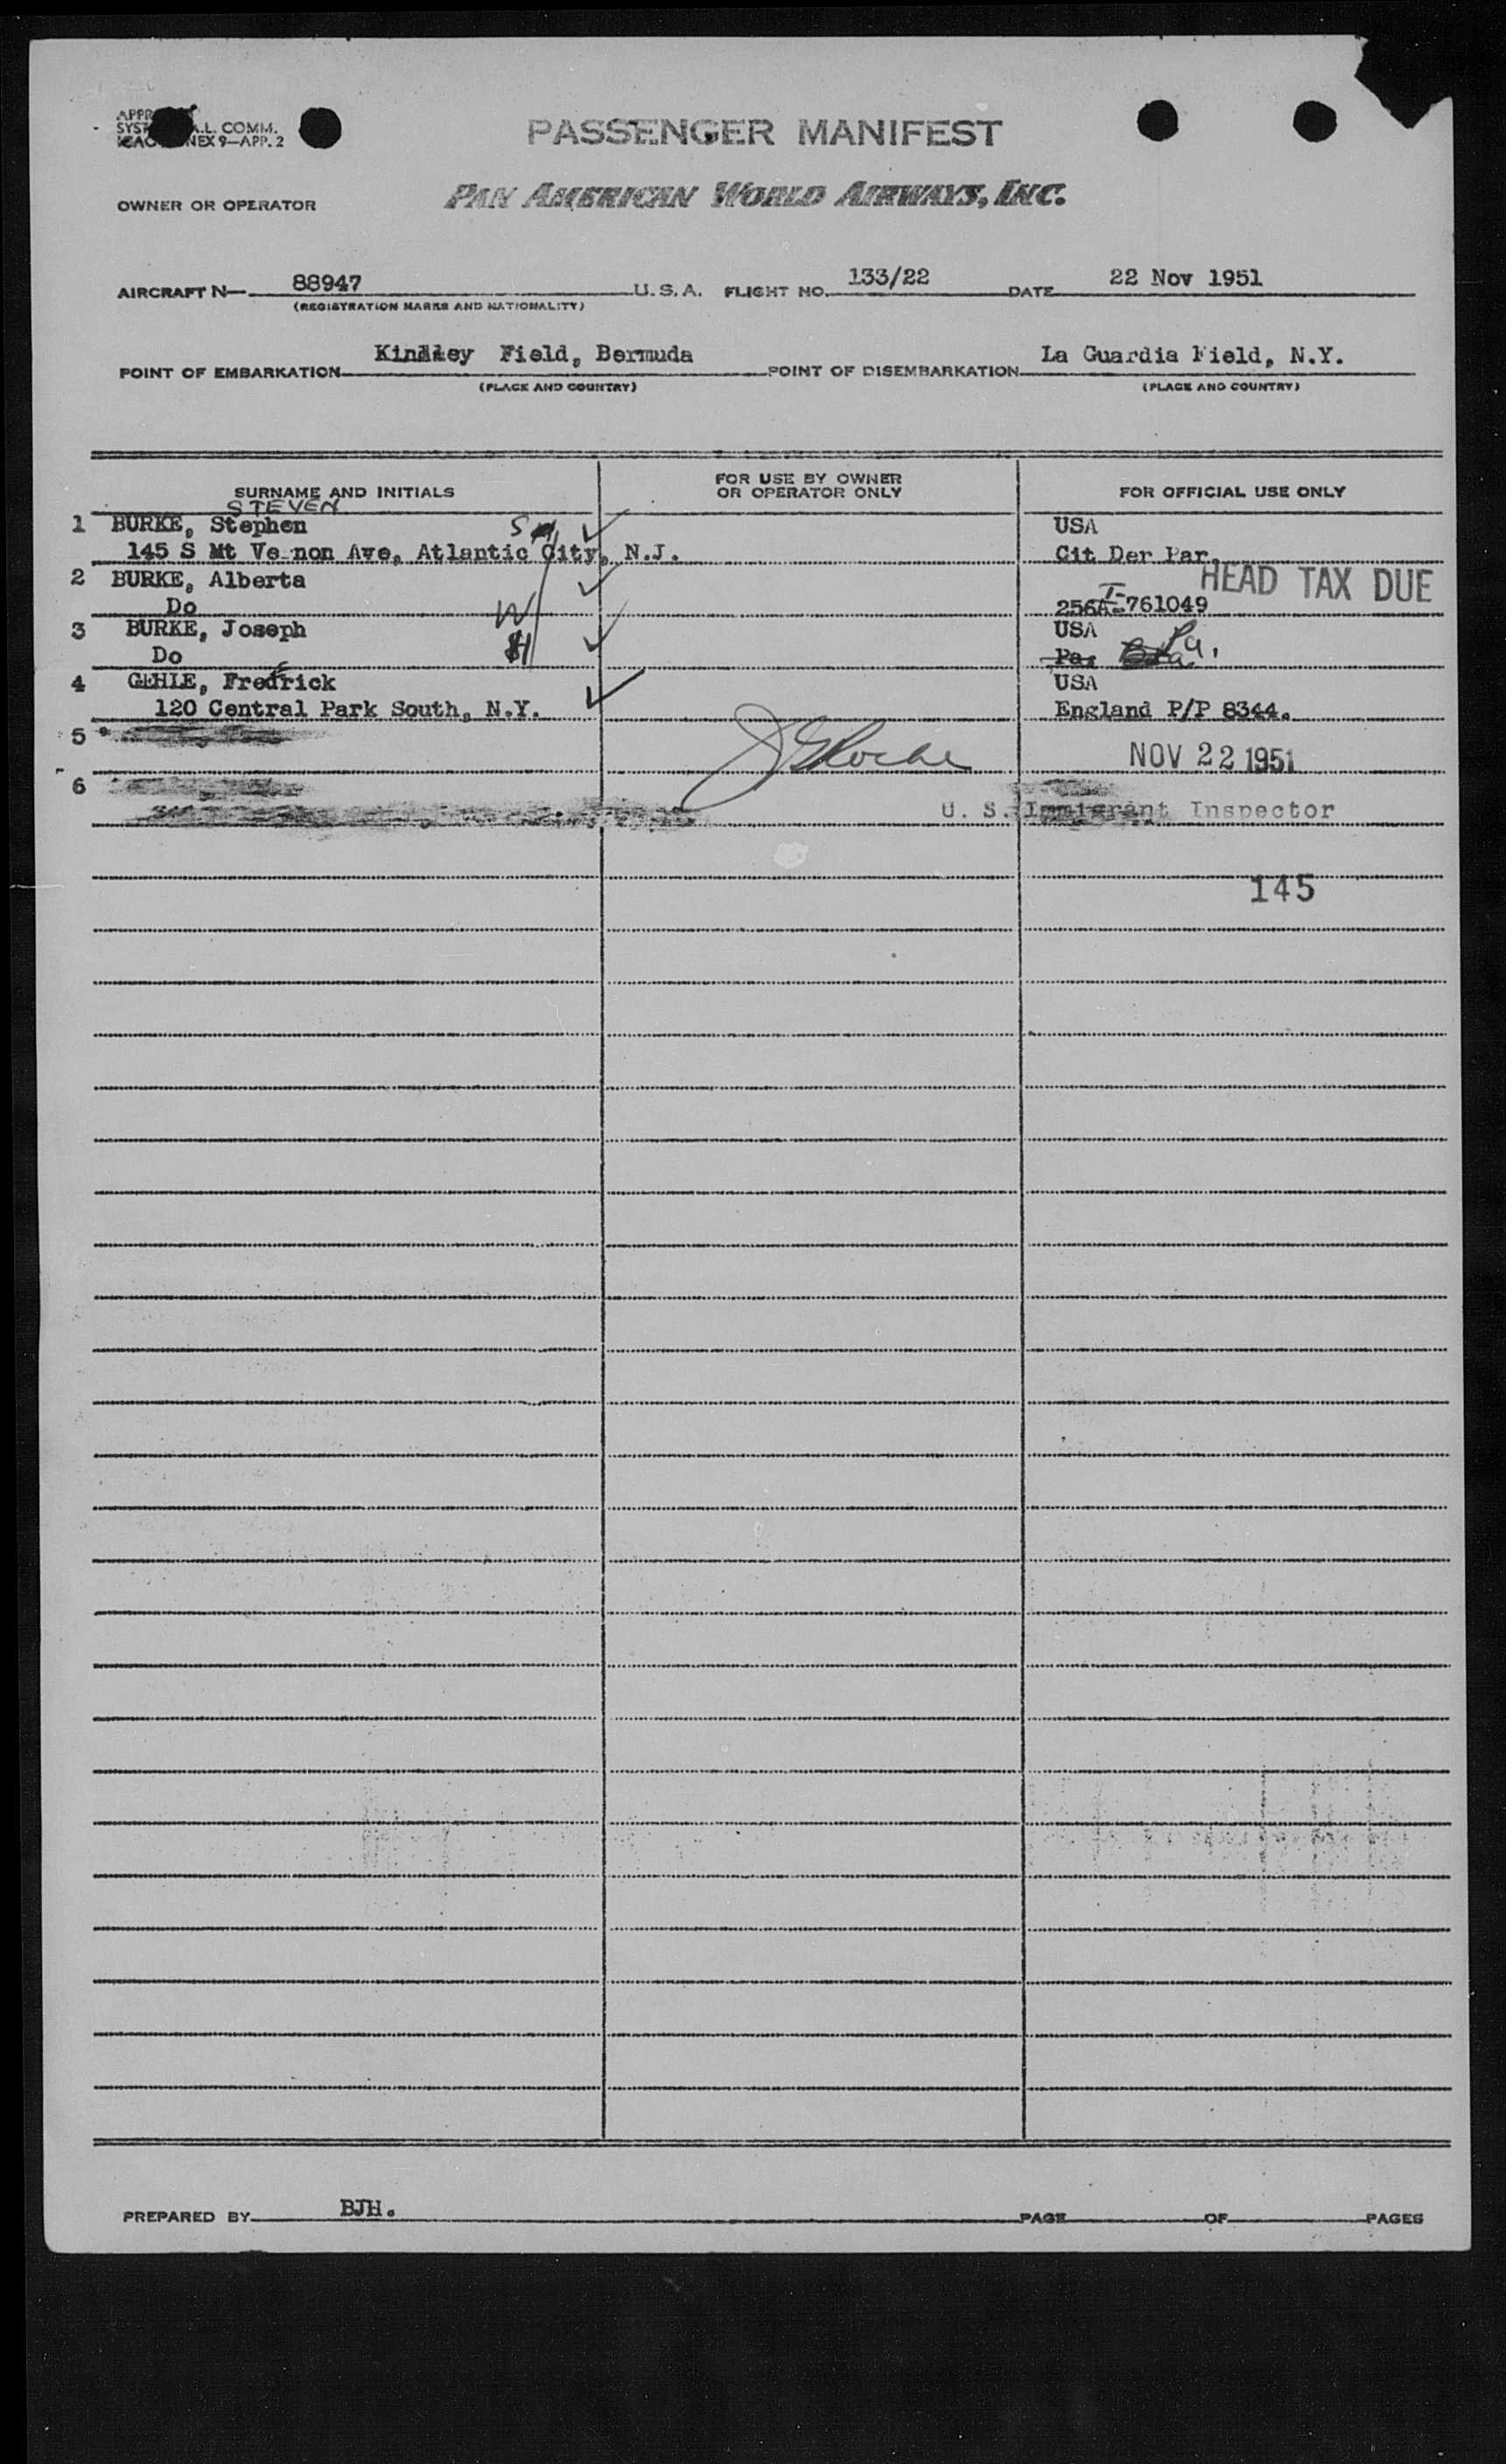 PASSENGER MANIFEST
A.L. COMM.
NEX 9—APP. 2
OWNER OR OPERATOR PAN AMERICAN WORLD AIRWAYS, INC.
AIRCRAFT N— 88947 U.S.A. FLIGHT NO. 133/22 DATE 22 Nov 1951
(REGISTRATION MARKS AND NATIONALITY)
POINT OF EMBARKATION Kindley Field, Bermuda POINT OF DISEMBARKATION La Guardia Field, N.Y.
(PLACE AND COUNTRY) (PLACE AND COUNTRY)
SURNAME AND INITIALS FOR USE BY OWNER OR OPERATOR ONLY FOR OFFICIAL USE ONLY
STEVEN
1 BURKE, Stephen S USA
145 S Mt Vernon Ave, Atlantic City, N.J. Cit Der Par
2 BURKE, Alberta HEAD TAX DUE
Do W 256 I-761049
3 BURKE, Joseph USA
Do H Pa. Pa.
4 GEHLE, Fredrick USA
120 Central Park South, N.Y. England P/P 8344.
5 NOV 22 1951
6
U. S. Immigrant Inspector
145
PREPARED BY BJH. PAGE OF PAGES